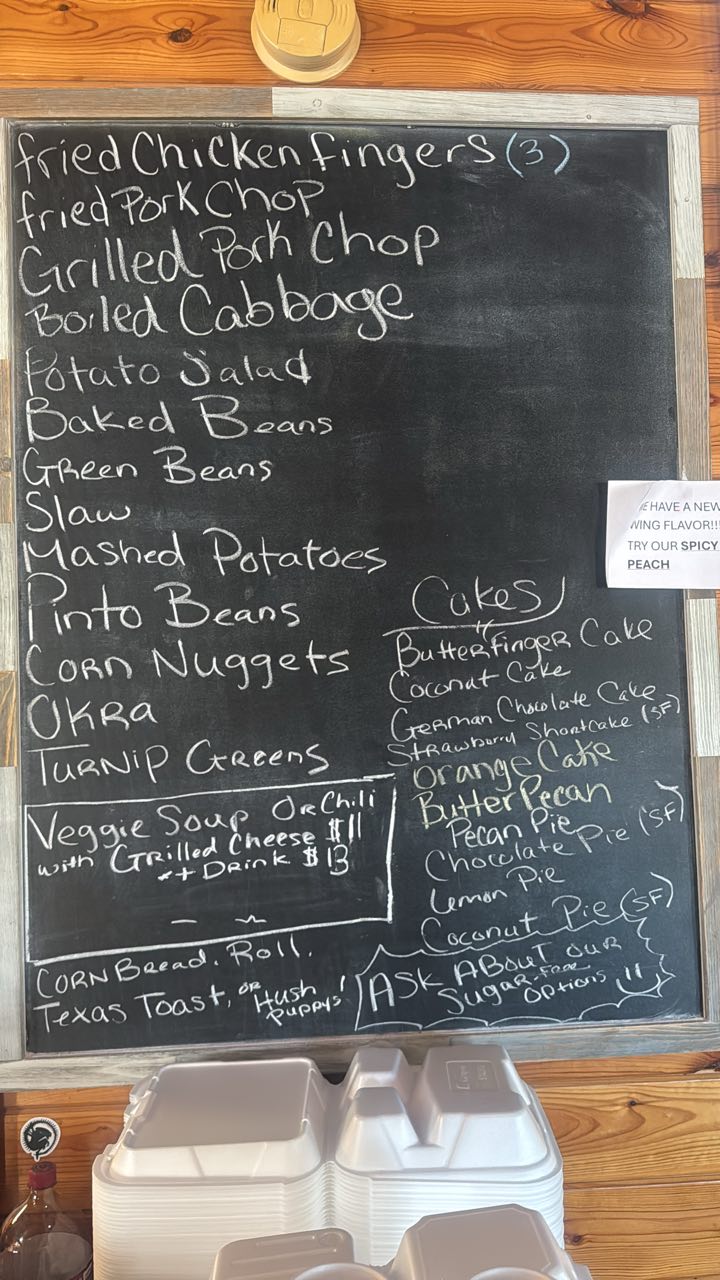 fried Chicken fingers (3)
fried Pork Chop
Grilled Pork Chop
Boiled Cabbage
Potato Salad
Baked Beans
Green Beans
Slaw
Mashed Potatoes
Pinto Beans
Corn Nuggets
OKRA
Turnip Greens
Veggie Soup Or Chili
with Grilled Cheese $11
*+ Drink $13
Corn Bread. Roll.
Texas Toast, or Hush
Puppys!
WE HAVE A NEW
WING FLAVOR!!!
TRY OUR SPICY
PEACH
Cakes
Butterfinger Cake
Coconut Cake
German Chocolate Cake
Strawberry Shortcake (SF)
Orange Cake
Butter Pecan
Pecan Pie
Chocolate Pie (SF)
Lemon Pie
Coconut Pie (SF)
Ask About our
Sugar-free
options !!